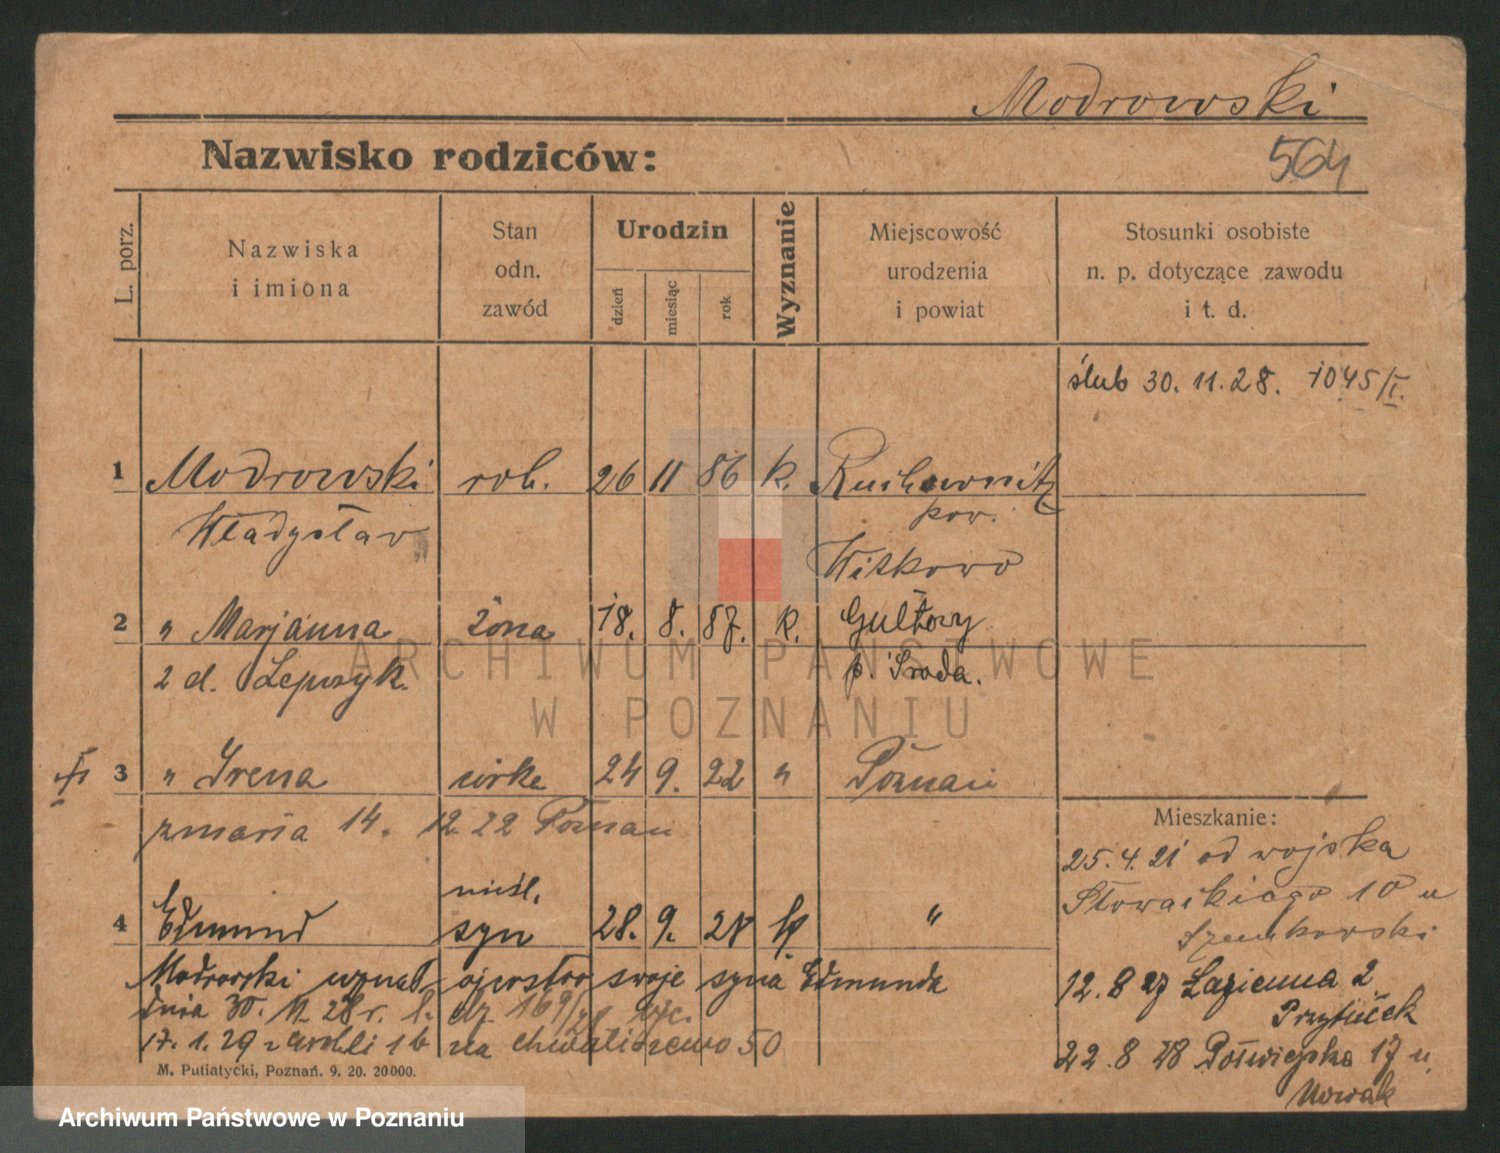 Modrowski
Nazwisko rodziców:
564
L. porz.
Nazwiska
i imiona
Stan
odn.
zawód
Urodzin
dzień
miesiąc
rok
Wyznanie
Miejscowość
urodzenia
i powiat
Stosunki osobiste
n. p. dotyczące zawodu
i t. d.
ślub 30. 11. 28. 1045/I.
1 Modrowski rob. 26 11 86 k.
Władysław pow.
Witkowo
2 " Marjanna żona 18. 8. 87. k. Gułtowy
2 d. p. Środa.
ARCHIWUM PAŃSTWOWE
W POZNANIU
3 " Irena córka 24 9. 22 " Poznań
zmarła 14. 12. 22 Poznań
Mieszkanie:
25. 4. 21 od wojska
Słowackiego 10 u
nieśl.
4 Edmund syn 28. 9. "
Modrowski uznał ojcostwo swoje syna Edmunda
dnia 30. 11. 28 r.
17. 1. 29 na 50
12. 8 27 Łazienna 2
22. 8 28 Półwiejska 17 u
Nowak
M. Putiatycki, Poznań. 9. 20. 20000.
Archiwum Państwowe w Poznaniu